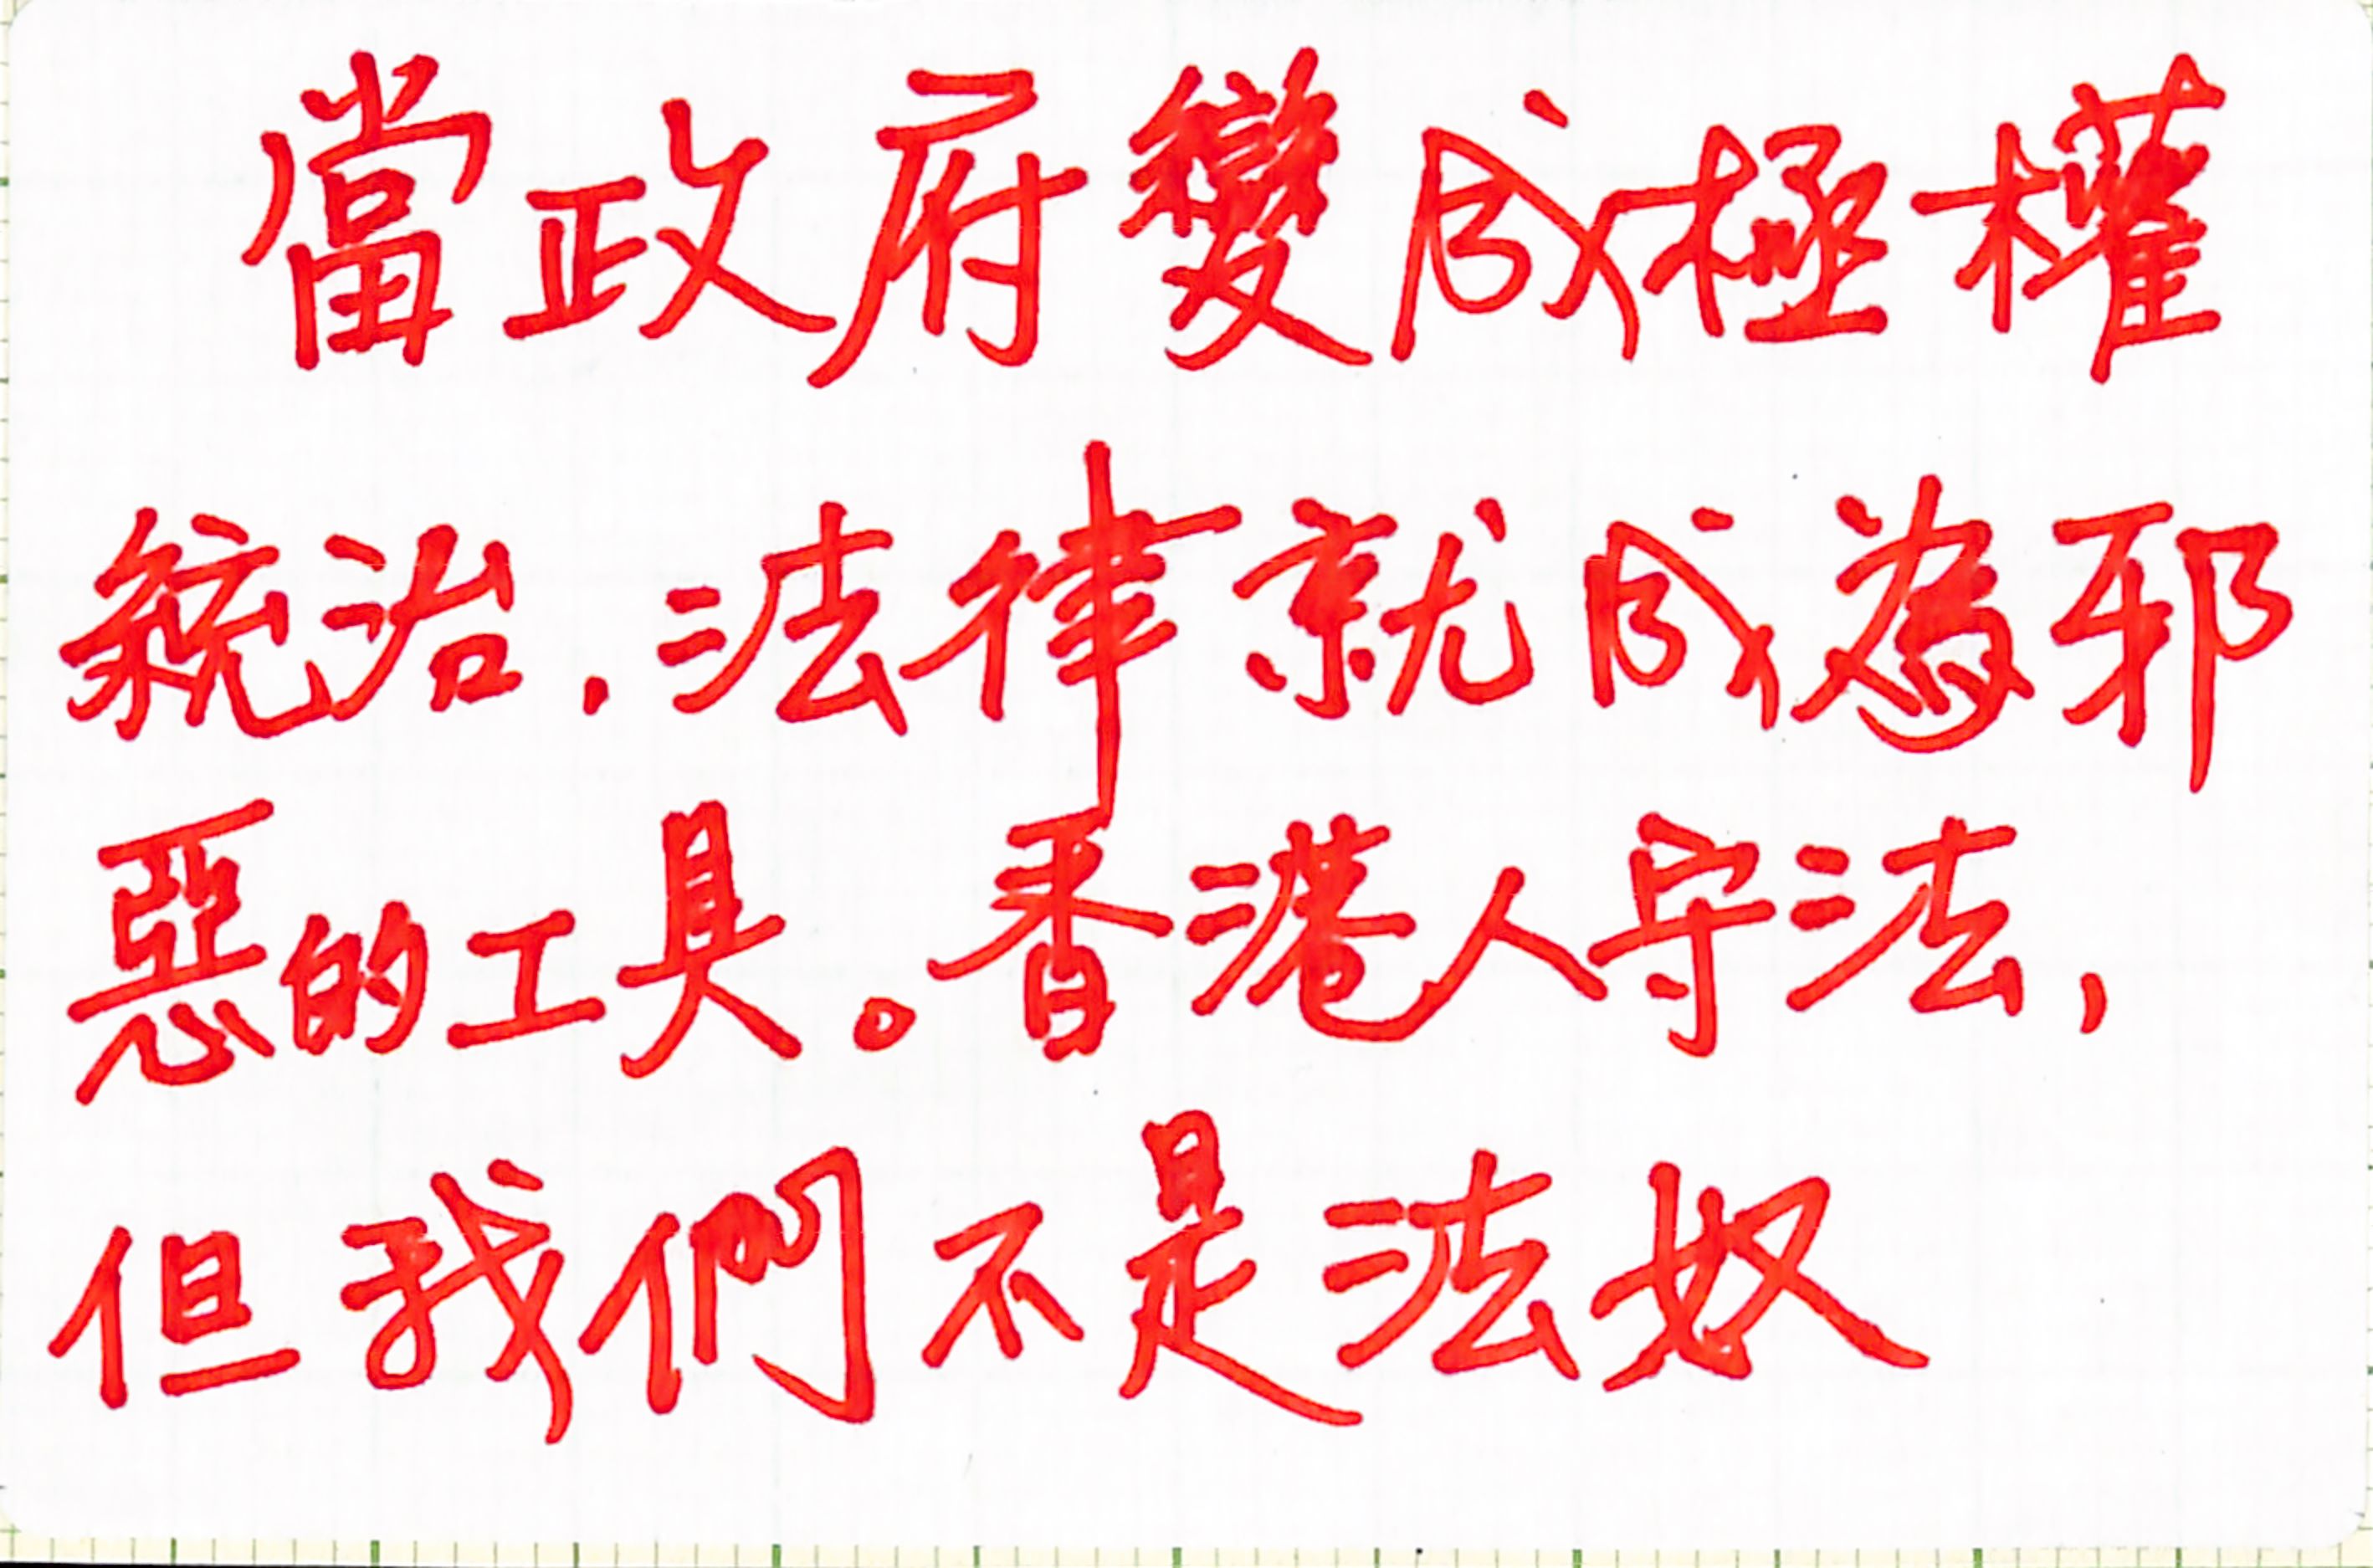 當政府變成極權
統治，法律就成為邪
惡的工具。香港人守法，
但我們不是法奴